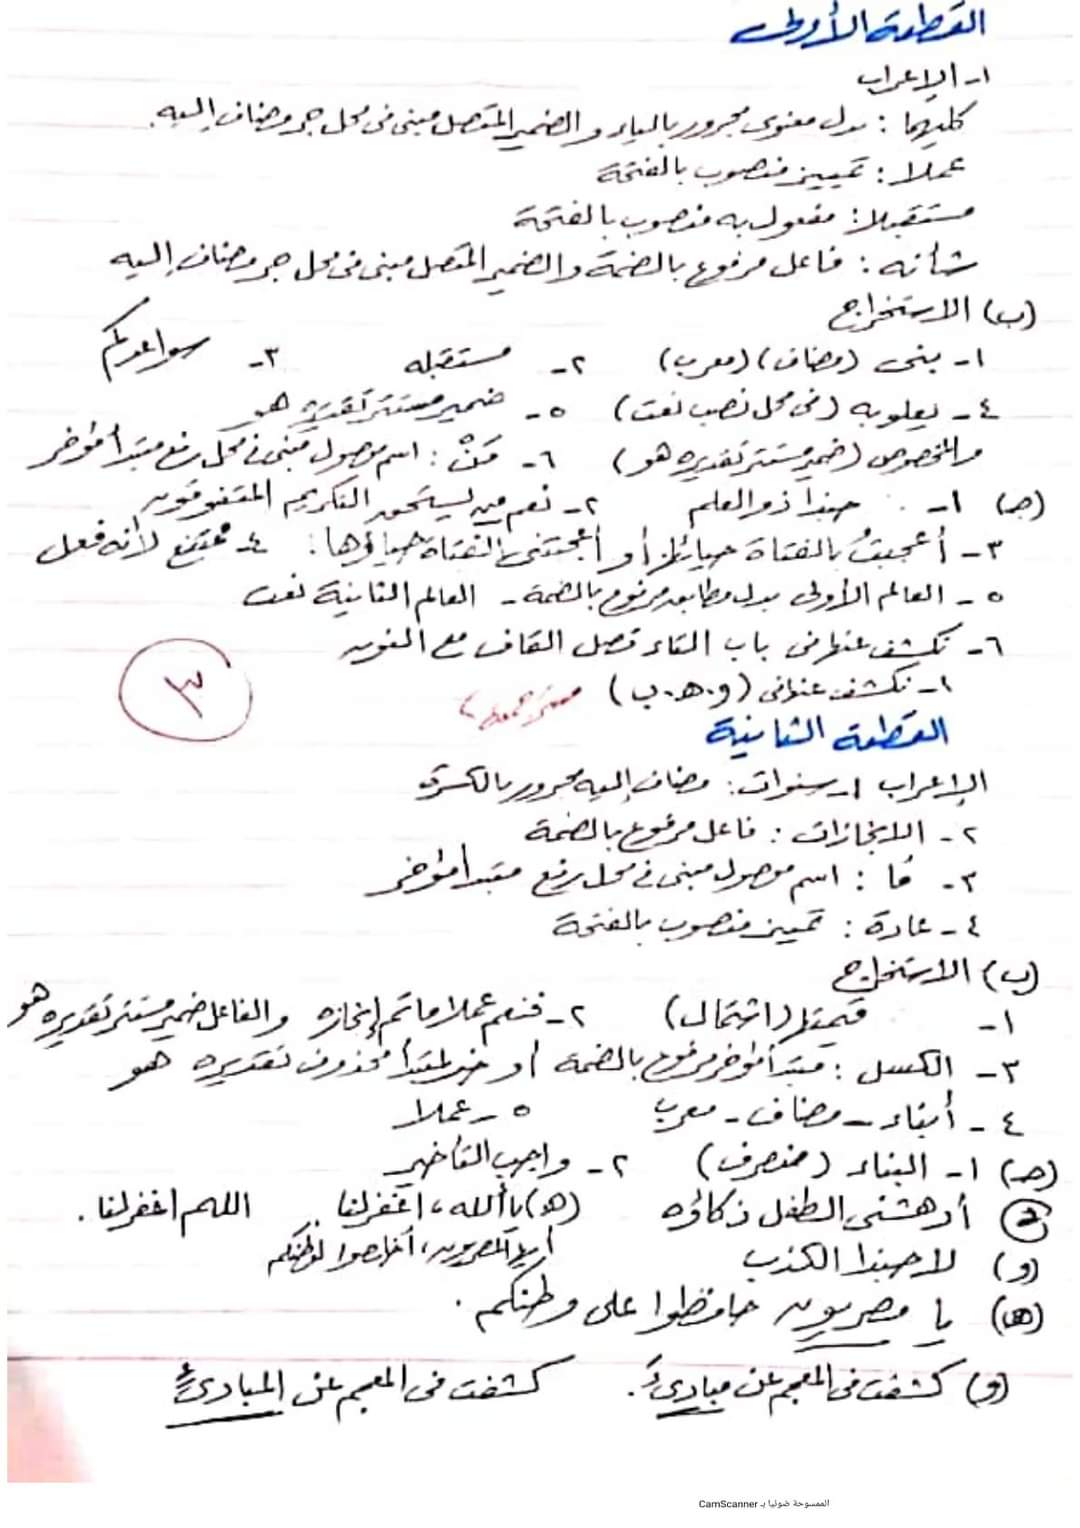 القطعة الأولى
١- الإعراب
كليهما : بدل معنوى مجرور بالياء والضمير المتصل مبنى فى محل جر مضاف إليه.
عملا : تمييز منصوب بالفتحة
مستقبلا : مفعول به منصوب بالفتحة
شأنه : فاعل مرفوع بالضمة والضمير المتصل مبنى فى محل جر مضاف إليه
(ب) الاستخراج
١- بنى (مضاف) (معرب) ٢- مستقبله ٣- سواعدكم
٤- يعلو به (فى محل نصب نعت) ٥- ضمير مستتر تقديره هو
والمخصوص (ضمير مستتر تقديره هو) ٦- مَنْ : اسم موصول مبنى فى محل رفع مبتدأ مؤخر
(جـ) ١- حبذا ذو العلم ٢- نعم من يستحق التكريم المتفوقون
٣- أعجبتُ بالفتاة حيائها أو أعجبتنى الفتاة حياؤها. ٤- ممتنع لأنه فعل
٥- العالم الأولى بدل مطابق مرفوع بالضمة - العالم الثانية نعت
٦- نكشف عنها فى باب التاء فصل القاف مع النون
١- نكشف عنها فى (و.هـ.ب)
٣
القطعة الثانية
الإعراب ١- سنوات: مضاف إليه مجرور بالكسرة
٢- الانجازات : فاعل مرفوع بالضمة
٣- مَا : اسم موصول مبنى فى محل رفع مبتدأ مؤخر
٤- عادة : تمييز منصوب بالفتحة
(ب) الاستخراج
١- قيمتها (اشتمال) ٢- فنعم عملا ما تم إنجازه والفاعل ضمير مستتر تقديره هو
٣- الكسل : مبتدأ مؤخر مرفوع بالضمة أو خبر لمبتدأ محذوف تقديره هو
٤- أبناء - مضاف - معرب ٥- عملا
(جـ) ١- البناء (منصرف) ٢- واجب التأخير
أدهشنى الطفل ذكاؤه (هـ) يا ألله، اغفر لنا. اللهم اغفر لنا.
(و) لا حبذا الكذب أيها المصريون، أخلصوا لوطنكم
(هـ) يا مصريون حافظوا على وطنكم.
(و) كشفت فى المعجم عن مبادئَ. كشفت فى المعجم عن المبادئِ
الممسوحة ضوئيا بـ CamScanner